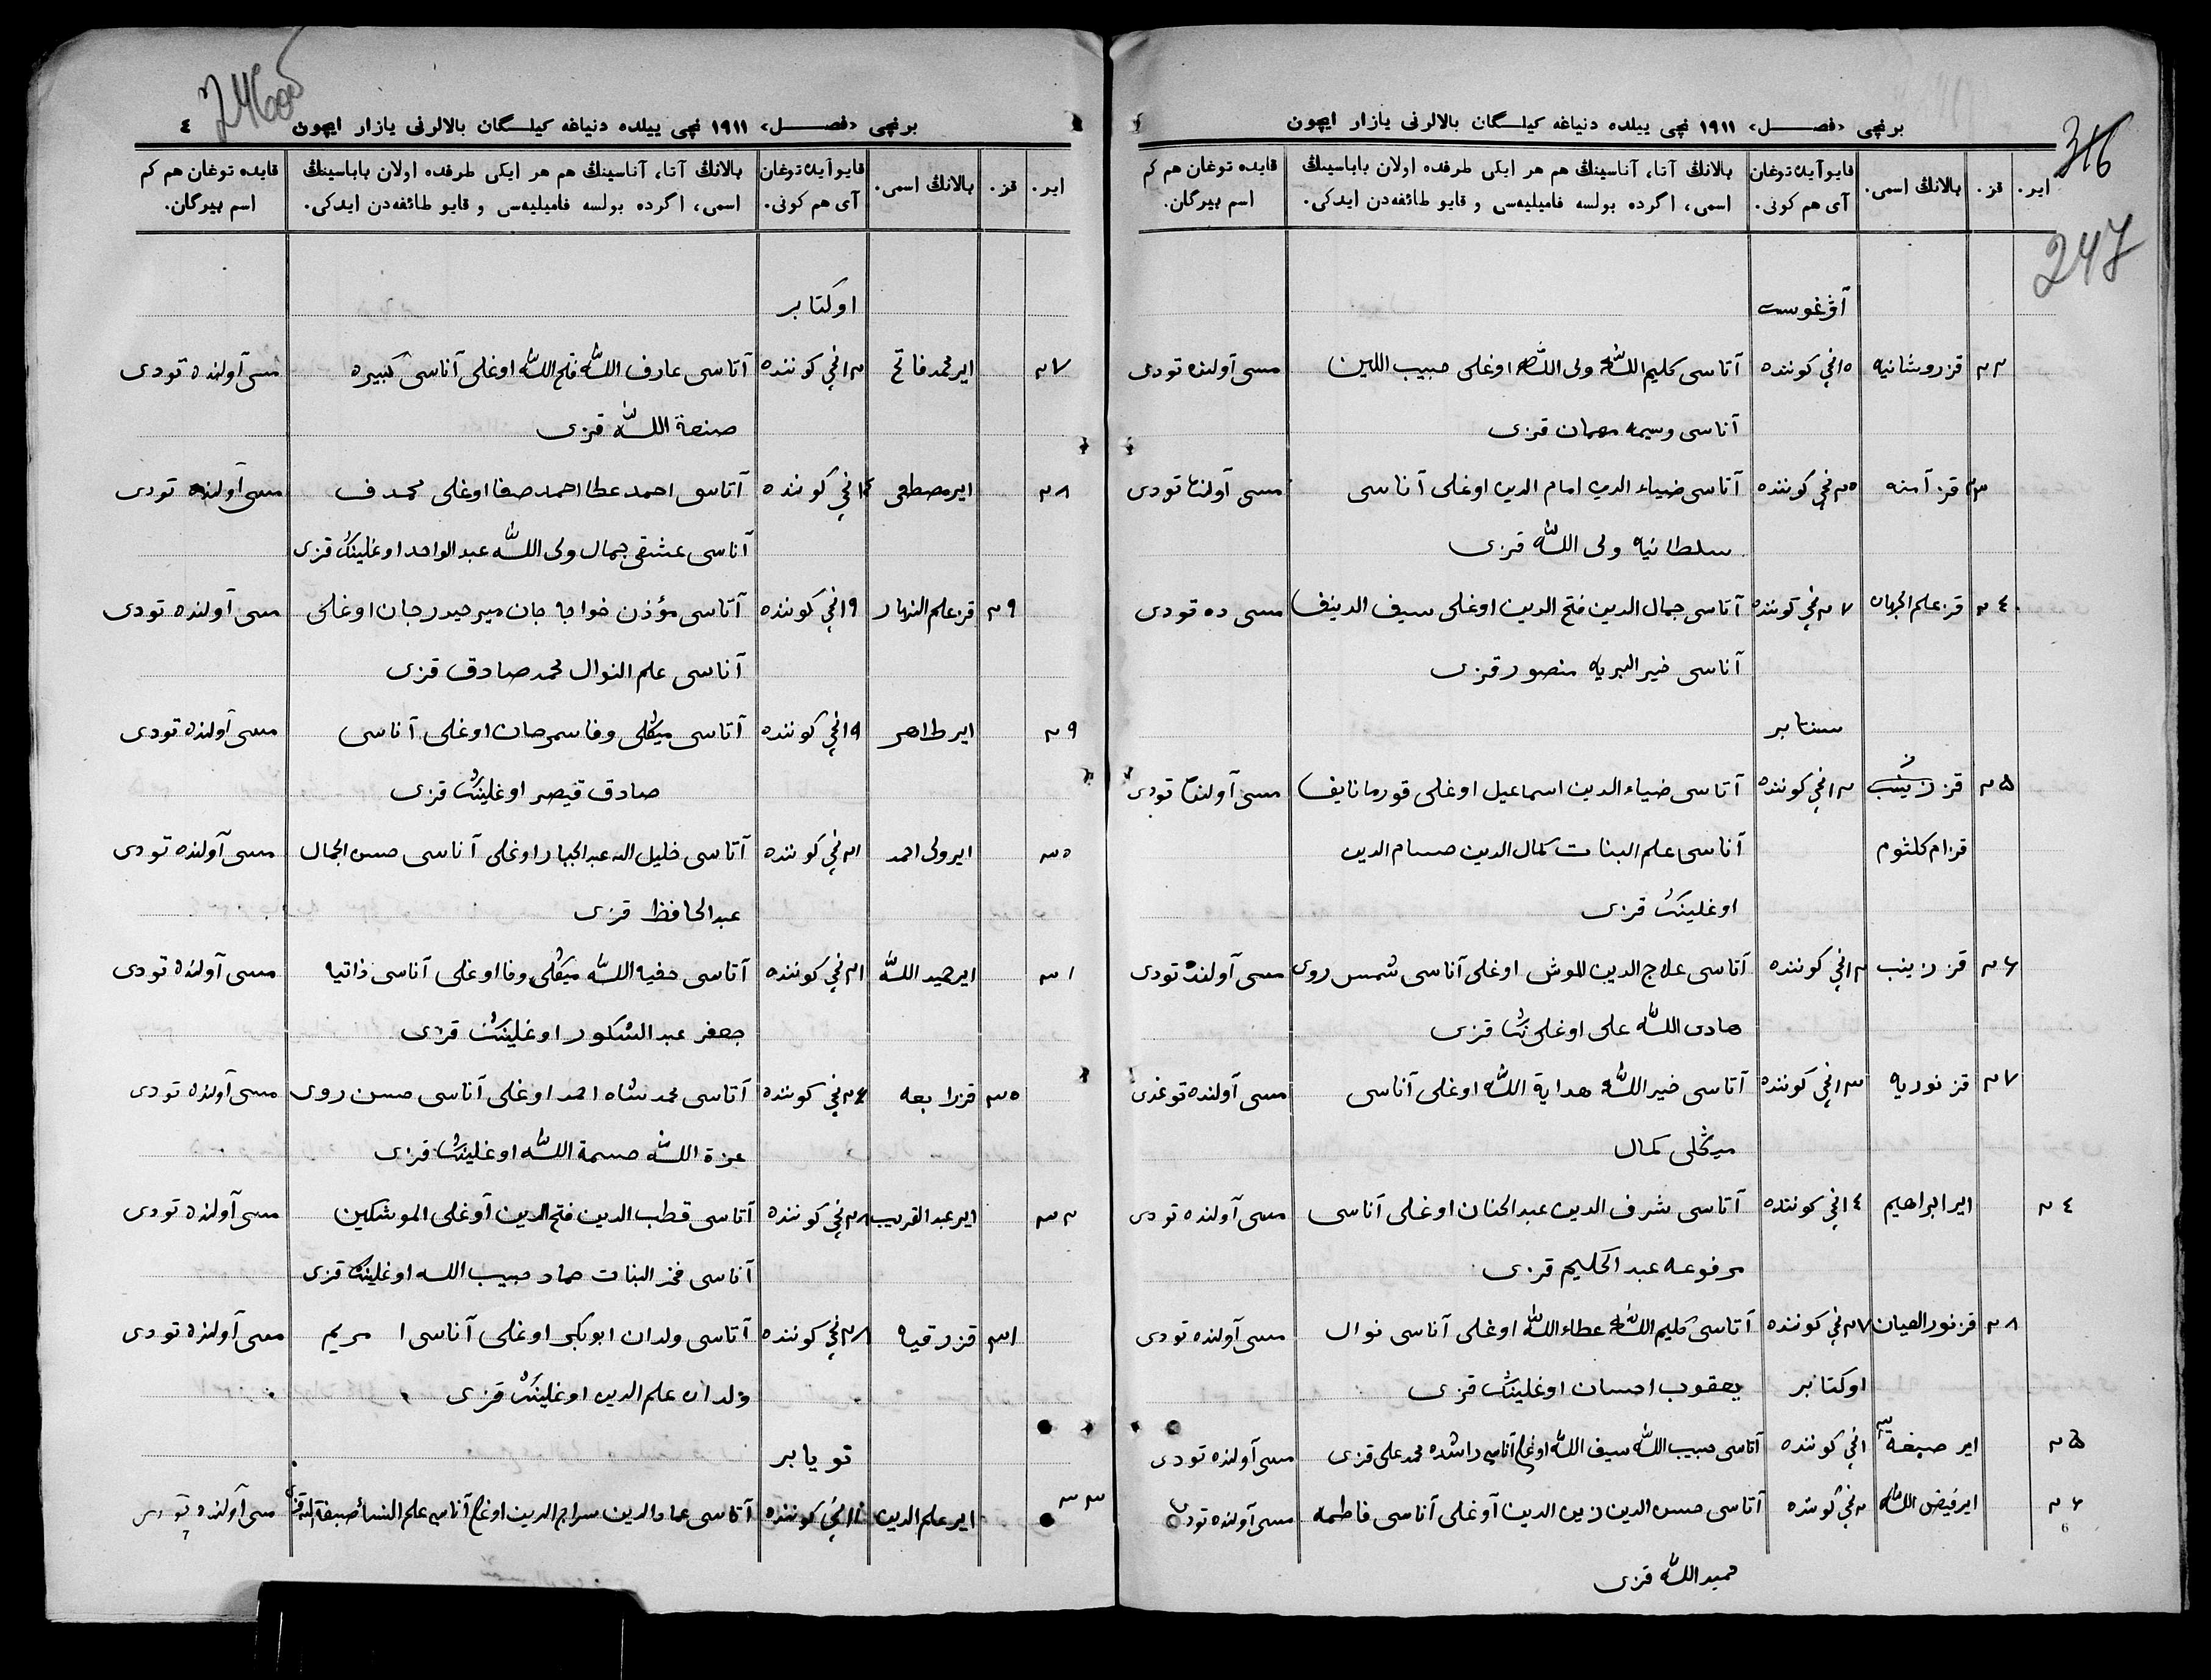 316
247
برنچی «فصل» ۱۹۱۱ نچی ییلده دنیاغه کیلگان بالالرنی یازار ایچون
ایر. قز. بالانڭ اسمی. قایو آیده توغان آی هم کونی. بالانڭ آتا، آناسینڭ هم هر ایکی طرفده اولان باباسینڭ اسمی، اگرده بولسه فامیلیه‌س و قایو طائفه‌دن ایدکی. قایده توغان هم کم اسم بیرگان.
آوغوست
۲۲ قز روشانیه ۱۵ نچی کوننده آتاسی کلیم الله ولی الله اوغلی حبیب اللین مسی آولنده تودی
آناسی وسیمه مهمان قزی
۲۳ قز آمنه ۲۵ نچی کوننده آتاسی ضیاء الدین امام الدین اوغلی آناسی مسی آولنده تودی
سلطانیه ولی الله قزی
۲۴ قز علم الجهان ۲۷ نچی کوننده آتاسی جمال الدین فتح الدین اوغلی سیف الدینف مسی ده تودی
آناسی خیر البریه منصور قزی
سنتابر
۲۵ قز زینب ۱۲ نچی کوننده آتاسی ضیاء الدین اسماعیل اوغلی قورمانایف مسی آولنده تودی
قز ام کلثوم آناسی علم البنات کمال الدین حسام الدین
اوغلینڭ قزی
۲۶ قز زینب ۱۲ نچی کوننده آتاسی علاج الدین للوش اوغلی آناسی شمس روی مسی آولنده تودی
هادی الله علی اوغلی نڭ قزی
۲۷ قز نوریه ۱۳ نچی کوننده آتاسی خیر الله هدایة الله اوغلی آناسی مسی آولنده توغدی
میڭلی کمال
۲۴ ایر ابراهیم ۱۴ نچی کوننده آتاسی شرف الدین عبد الحنان اوغلی آناسی مسی آولنده تودی
مرفوعه عبد الحلیم قزی
۲۸ قز نور العیان ۲۷ نچی کوننده آتاسی کلیم الله عطاء الله اوغلی آناسی نوال مسی آولنده تودی
اوکتابر یعقوب احسان اوغلینڭ قزی
۲۵ ایر صبغة الله ۱ نچی کوننده آتاسی حبیب الله سیف الله اوغلی آناسی راشده محمد علی قزی مسی آولنده تودی
۲۶ ایر فیض الله ۲ نچی کوننده آتاسی حسن الدین زین الدین آوغلی آناسی فاطمه مسی آولنده تودی
6
حمید الله قزی
برنچی «فصل» ۱۹۱۱ نچی ییلده دنیاغه کیلگان بالالرنی یازار ایچون ٤
ایر. قز. بالانڭ اسمی. قایو آیده توغان آی هم کونی. بالانڭ آتا، آناسینڭ هم هر ایکی طرفده اولان باباسینڭ اسمی، اگرده بولسه فامیلیه‌س و قایو طائفه‌دن ایدکی. قایده توغان هم کم اسم بیرگان.
اوکتابر
۲۷ ایر محمد فاتح ۱۲ نچی کوننده آتاسی عارف الله فتح الله اوغلی آناسی کبیره مسی آولنده تودی
صنعة الله قزی
۲۸ ایر مصطفی نچی کوننده آتاسی احمد عطا احمد صفا اوغلی محمدف مسی آولنده تودی
آناسی عشقی جمال ولی الله عبد الواحد اوغلینڭ قزی
۲۹ قز علم النهار ۱۹ نچی کوننده آتاسی مؤذن خواجا جان میر حیدر جان اوغلی مسی آولنده تودی
آناسی علم النوال محمد صادق قزی
۲۹ ایر طاهر ۱۹ نچی کوننده آتاسی میڭلی وفا سمرجان اوغلی آناسی مسی آولنده تودی
صادق قیصر اوغلینڭ قزی
۳۰ ایر ولی احمد ۲۱ نچی کوننده آتاسی خلیل الله عبد الجبار اوغلی آناسی حسن الجمال مسی آولنده تودی
عبد الحافظ قزی
۳۱ ایر حمید الله ۲۱ نچی کوننده آتاسی حفیه الله میڭلی وفا اوغلی آناسی ذاتیه مسی آولنده تودی
جعفر عبد الشکور اوغلینڭ قزی
۳۰ قز رابعه ۲۴ نچی کوننده آتاسی محمد شاه احمد اوغلی آناسی حسن روی مسی آولنده تودی
عزة الله حسمة الله اوغلینڭ قزی
۳۲ ایر عبد القریب ۲۸ نچی کوننده آتاسی قطب الدین فتح الدین آوغلی الموشکین مسی آولنده تودی
آناسی فخر البنات حماد حبیب الله اوغلینڭ قزی
۳۱ قز رقیه ۲۸ نچی کوننده آتاسی ولدان ابوبکر اوغلی آناسی مریم مسی آولنده تودی
ولدان علم الدین اوغلینڭ قزی
نویابر
۳۳ ایر علم الدین نچی کوننده آتاسی عماد الدین سراج الدین اوغلی آناسی علم النسا صبغة الله قزی مسی آولنده